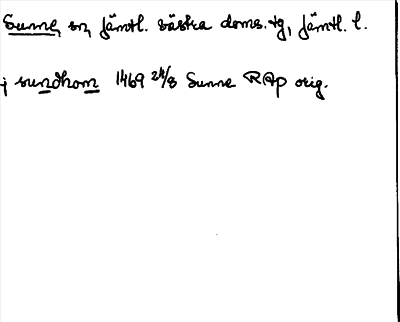 Sunne, sn, Jämtl. västra doms. tg, Jämtl. l.
j sundhom 1469 24/8 Sunne RAp orig.